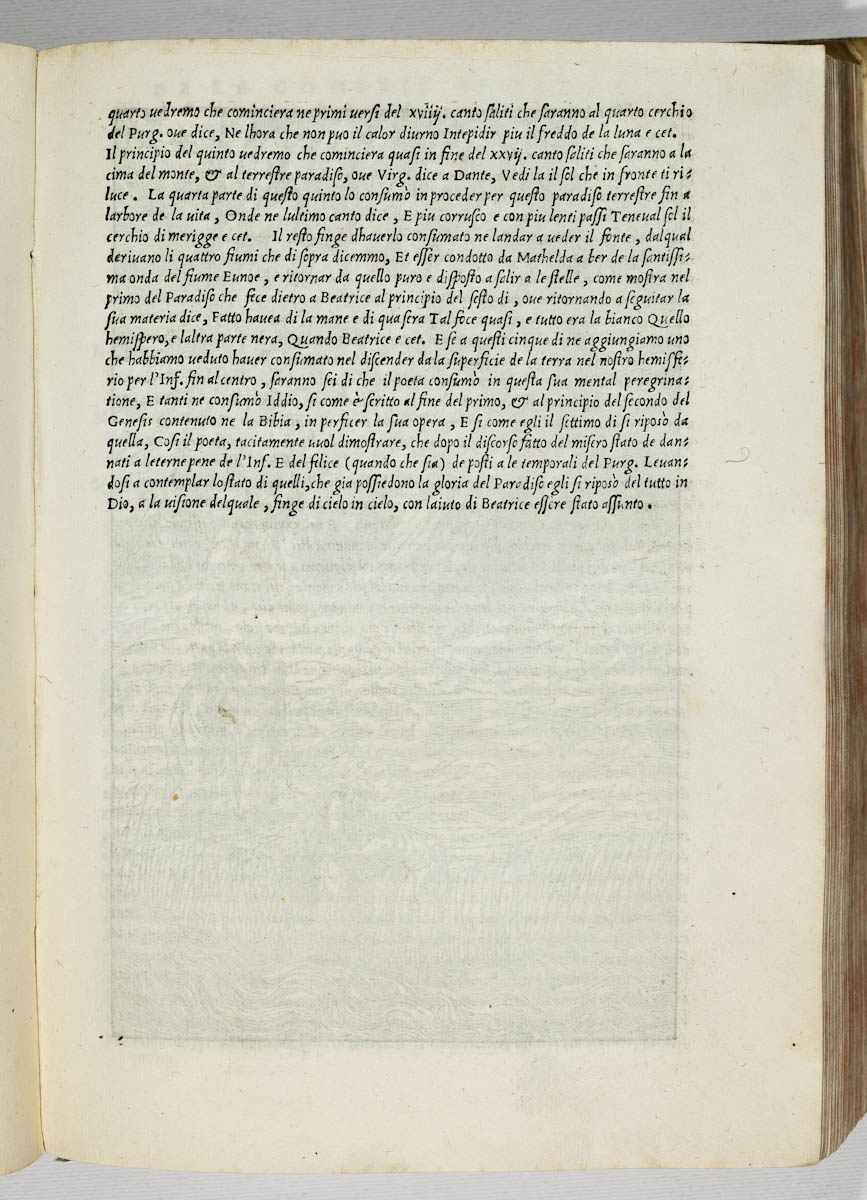 quarto uedremo che cominciera ne primi uersi del xviiij. canto saliti che saranno al quarto cerchio
del Purg. oue dice, Ne lhora che non puo il calor diurno Intepidir piu il freddo de la luna e cet.
Il principio del quinto uedremo che cominciera quasi in fine del xxvij. canto saliti che saranno a la
cima del monte, & al terrestre paradiso, oue Virg. dice a Dante, Vedi la il sol che in fronte ti ri-
luce. La quarta parte di questo quinto lo consumò in proceder per questo paradiso terrestre fin a
larbore de la uita, Onde ne lultimo canto dice, E piu corrusco e con piu lenti passi Teneual sol il
cerchio di merigge e cet. Il resto finge dhauerlo consumato ne landar a ueder il fonte, dalqual
deriuano li quattro fiumi che di sopra dicemmo, Et esser condotto da Mathelda a ber de la santissi-
ma onda del fiume Eunoe, e ritornar da quello puro e disposto a salir a le stelle, come mostra nel
primo del Paradiso che fece dietro a Beatrice al principio del sesto di, oue ritornando a seguitar la
sua materia dice, Fatto hauea di la mane e di qua sera Tal foce quasi, e tutto era la bianco Quello
hemispero, e laltra parte nera, Quando Beatrice e cet. E se a questi cinque di ne aggiungiamo uno
che habbiamo ueduto hauer consumato nel discender da la superficie de la terra nel nostro hemisse-
rio per l'Inf. fin al centro, saranno sei di che il poeta consumò in questa sua mental peregrina-
tione, E tanti ne consumò Iddio, si come è scritto al fine del primo, & al principio del secondo del
Genesis contenuto ne la Bibia, in perficer la sua opera, E si come egli il settimo di si riposò da
quella, Cosi il poeta, tacitamente uuol dimostrare, che dopo il discorso fatto del misero stato de dan-
nati a leterne pene de l'Inf. E del filice (quando che sia) de posti a le temporali del Purg. Leuan-
dosi a contemplar lo stato di quelli, che gia possiedono la gloria del Paradiso egli si riposò del tutto in
Dio, a la uisione delquale, finge di cielo in cielo, con laiuto di Beatrice essere stato assunto.